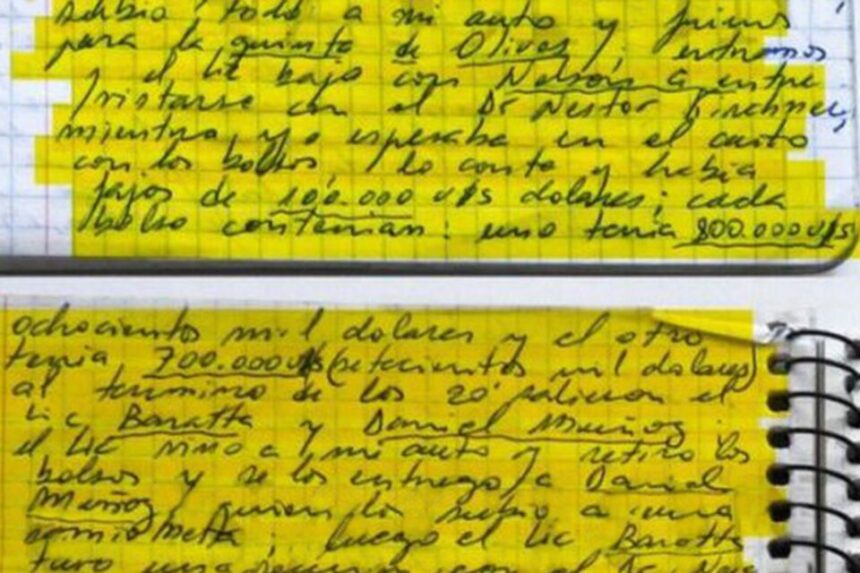 subio todo a mi auto y fuimos
para la quinta de Olivos, entramos
y el Lic bajo con Nelson a entre
vistarse con el Dr Nestor Kirchner,
mientras yo esperaba en el auto
con los bolsos, lo conte y habia
fajos de 100.000 U$S dolares; cada
bolso contenian: uno tenia 800.000 U$S
ochocientos mil dolares y el otro
tenia 700.000 U$S (setecientos mil dolares)
al termino de los 20' salieron el
Lic Baratta y Daniel Muñoz.
el Lic vino a mi auto y retiro los
bolsos y se los entrego a Daniel
Muñoz, quien lo subio a una
camioneta; luego el Lic Baratta
tuvo una reunion con el Dr